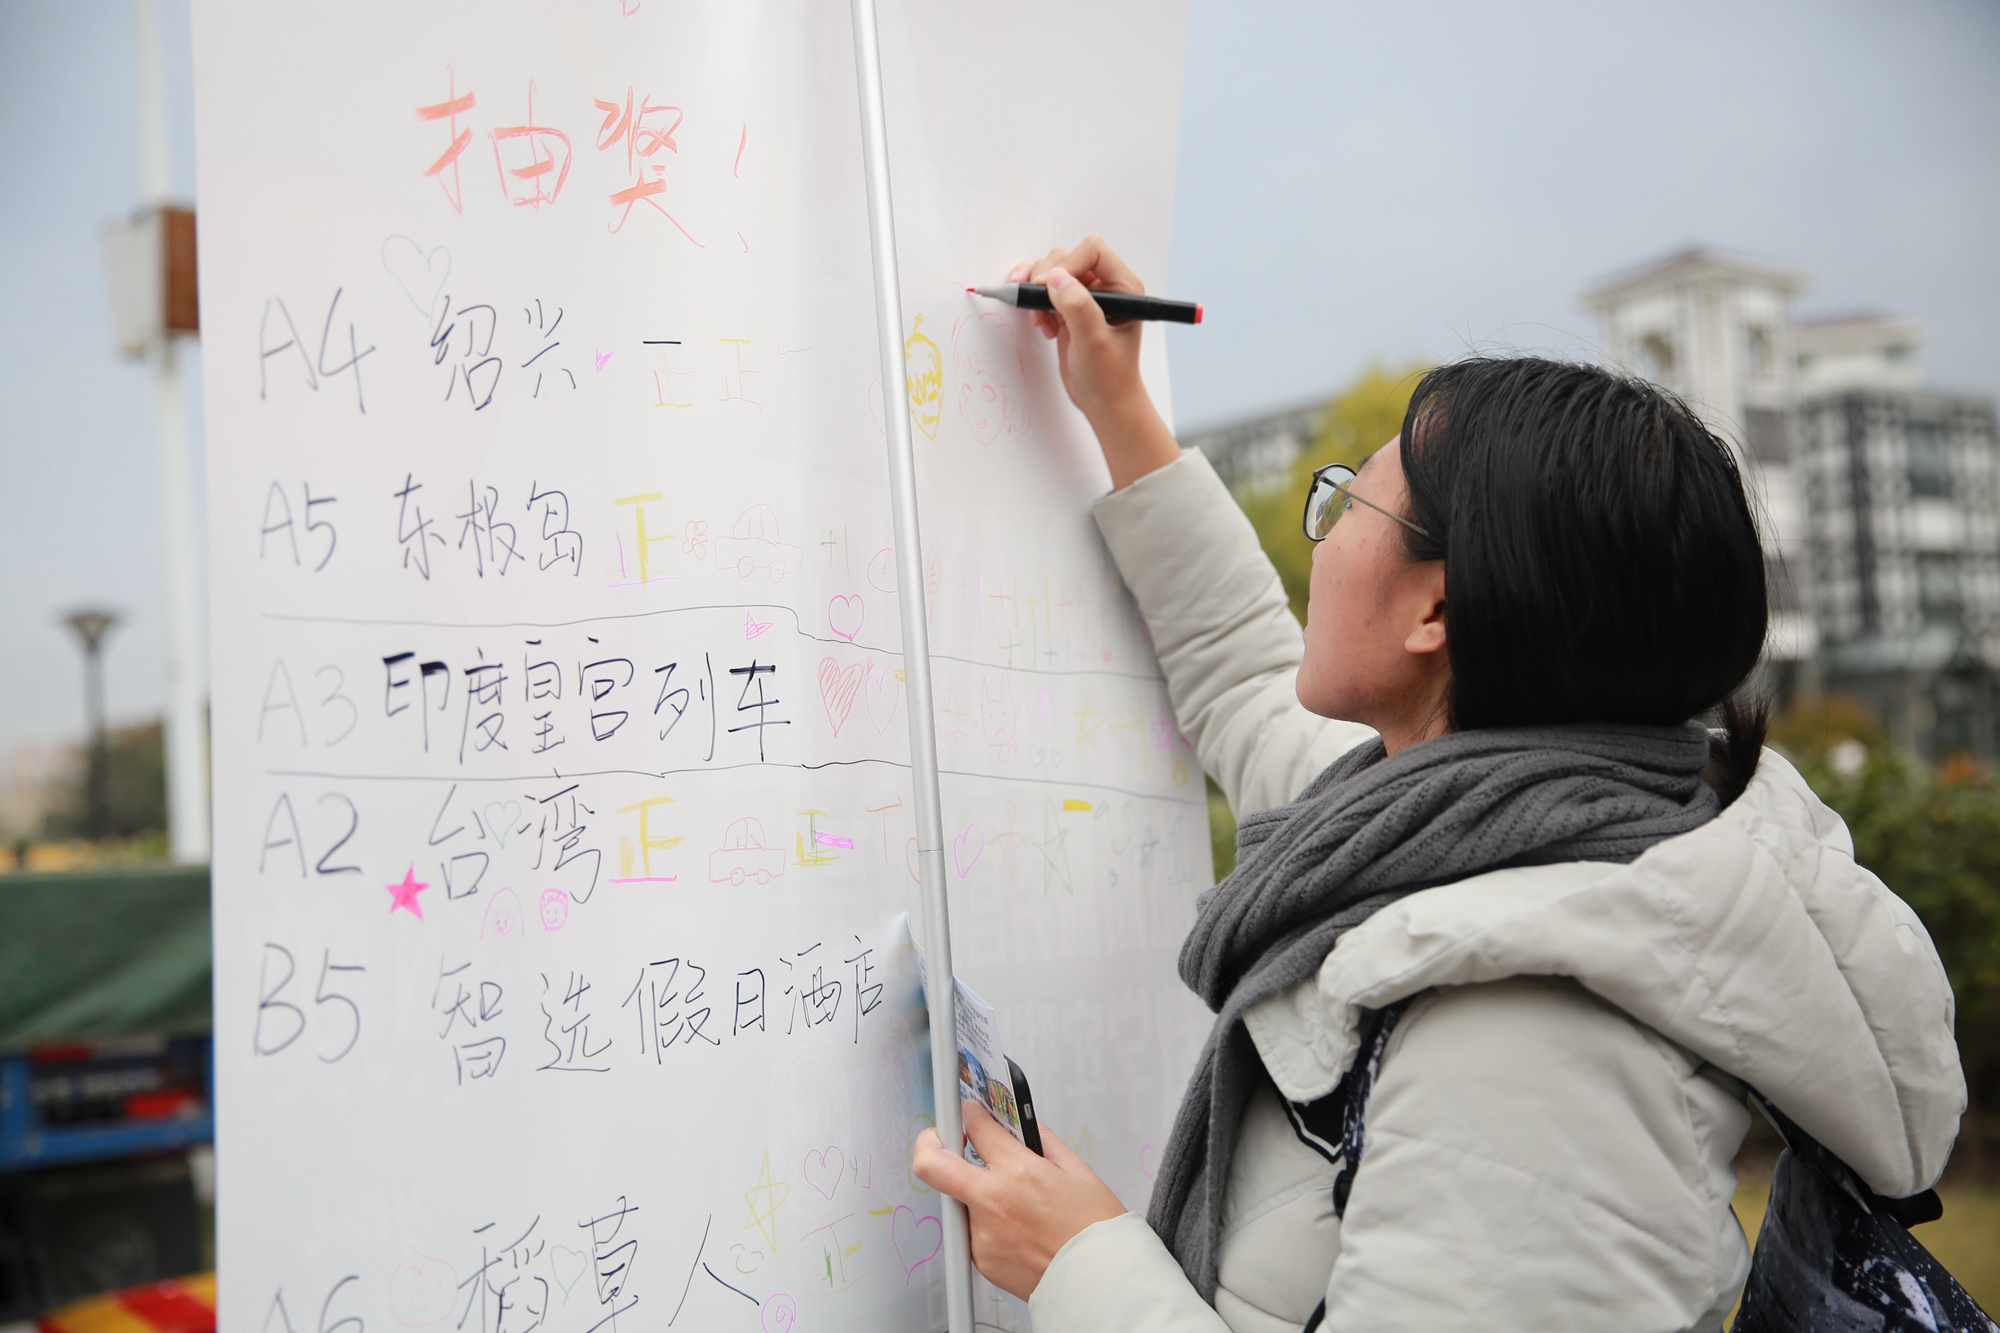 抽奖！
A4 绍兴 正 正 一
A5 东极岛 正 +1
A3 印度皇宫列车
A2 台湾 正
B5 智选假日酒店
A6 稻草人 正